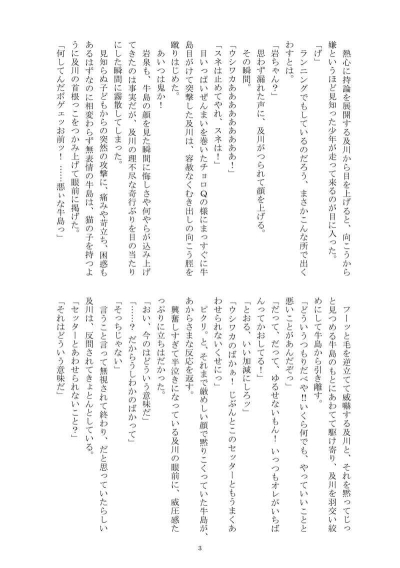 熱心に持論を展開する及川から目を上げると、向こうから
嫌というほど見知った少年が走って来るのが目に入った。
「げ」
ランニングでもしているのだろう、まさかこんな所で出く
わすとは。
「岩ちゃん？」
思わず漏れた声に、及川がつられて顔を上げる。
その瞬間。
「ウシワカああああああああ！」
「スネは止めてやれ、スネは！」
目いっぱいぜんまいを巻いたチョロＱの様にまっすぐに牛
島目がけて突撃した及川は、容赦なくむき出しの向こう脛を
蹴りはじめた。
あいつは鬼か！
岩泉も、牛島の顔を見た瞬間に悔しさや何やらが込み上げ
てきたのは事実だが、及川の理不尽な奇行ぶりを目の当たり
にした瞬間に霧散してしまった。
見知らぬ子どもからの突然の攻撃に、痛みや苛立ち、困惑も
あるはずなのに相変わらず無表情の牛島は、猫の子を持つよ
うに及川の首根っこをつかみ上げて眼前に掲げた。
「何してんだボゲェッお前ッ！……悪ぃな牛島っ」
フーッと毛を逆立てて威嚇する及川と、それを黙ってじっ
と見つめる牛島のもとにあわてて駆け寄り、及川を羽交い絞
めにして牛島から引き離す。
「どういうつもりだべや!!いくら何でも、やっていいことと
悪いことがあんだぞっ」
「だって、だって、ゆるせないもん！いっつもオレがいちば
んってかおしてる！」
「とおる、いい加減にしろッ」
「ウシワカのばかぁ！じぶんとこのセッターともうまくあ
わせられないくせにっ」
ピクリ。と、それまで厳めしい顔で黙りこくっていた牛島が、
あからさまな反応を返す。
興奮しすぎて半泣きになっている及川の眼前に、威圧感た
っぷりに立ちはだかった。
「おい、今のはどういう意味だ」
「……？だからうしわかのばかって」
「そっちじゃない」
言うこと言って無視されて終わり、だと思っていたらしい
及川は、反問されてきょとんとしている。
「セッターとあわせられないこと？」
「それはどういう意味だ」
3